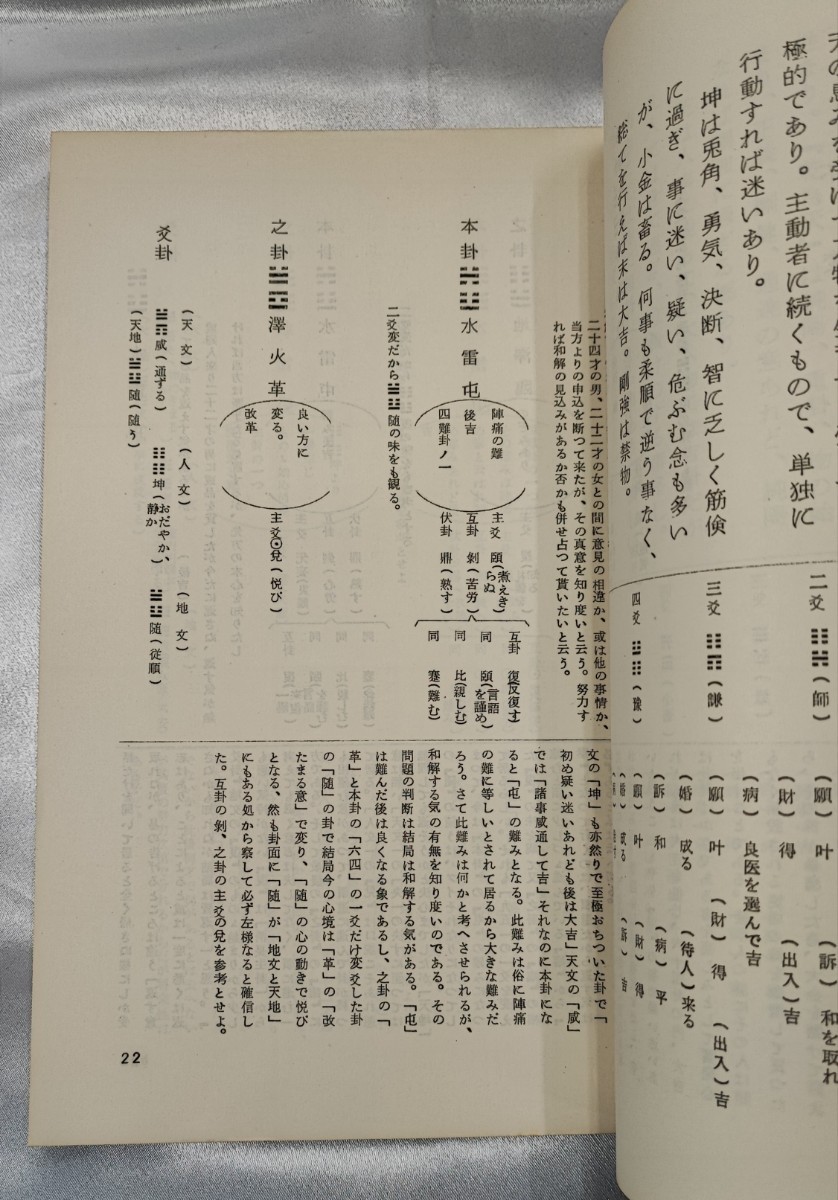 極的であり。主動者に続くもので、単独に
行動すれば迷いあり。
坤は兎角、勇気、決断、智に乏しく筋倹
に過ぎ、事に迷い、疑い、危ぶむ念も多い
が、小金は畜る。何事も柔順で逆う事なく、
総てを行えば末は大吉。剛強は禁物。
二爻 ䷆(師)
(願)叶 (訴)和を取れ
(財)得 (出入)吉
(病)良医を選んで吉
三爻 ䷎(謙)
(願)叶 (財)得 (出入)吉
(婚)成る (待人)来る
(訴)和 (病)平
四爻 ䷏(豫)
(願)叶 (財)得
(婚)成る (訴)吉
二十四才の男、二十二才の女との間に意見の相違か、或は他の事情か、
当方よりの申込を断つて来たが、その真意を知り度いと云う。努力す
れば和解の見込みがあるか否かも併せ占つて貰いたいと云う。
本卦 ䷂ 水雷屯
陣痛の難
後吉
四難卦ノ一
主爻 頤(煮えきらぬ)
互卦 剝(苦労)
伏卦 鼎(熟す)
互卦 復(反復す)
同 頤(言語を謹め)
同 比(親しむ)
同 蹇(難む)
二爻変だから䷐随の味をも観る。
之卦 ䷰ 澤火革
良い方に
変る。
改革
主爻⦿兌(悦び)
爻卦
(天文) (人文) (地文)
䷞咸(通ずる) ䷁坤(おだやか、静か) ䷐随(従順)
(天地)䷐随(随う)
文の「坤」も亦然りで至極おちついた卦で「
初め疑い迷いあれども後は大吉」天文の「咸」
では「諸事咸通して吉」それなのに本卦にな
ると「屯」の難みとなる。此難みは俗に陣痛
の難に等しいとされて居るから大きな難みだ
ろう。さて此難みは何かと考へさせられるが、
和解する気の有無を知り度いのである。その
問題の判断は結局は和解する気がある。「屯」
は難んだ後は良くなる象であるし、之卦の「
革」と本卦の「六四」の一爻だけ変爻した卦
の「随」の卦で結局今の心境は「革」の「改
たまる意」で変り、「随」の心の動きで悦び
となる、然も卦面に「随」が「地文と天地」
にもある処から察して必ず左様なると確信し
た。互卦の剝、之卦の主爻の兌を参考とせよ。
22